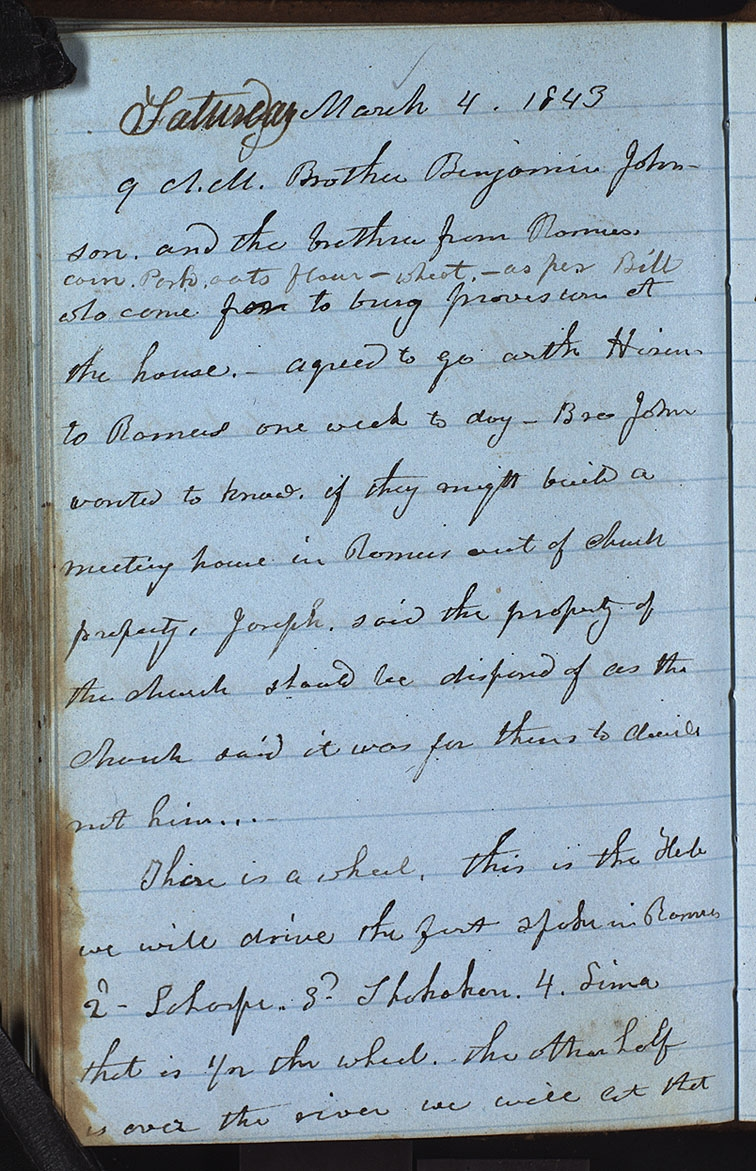 Saturday March 4. 1843
9 A.M. Brother Benjamin John-
son. and the brethren from Ramus.
corn. Pork, oats flour – wheat, – as per Bill
who come to bring provision at
the house. – agreed to go with Hiram
to Ramus one week to day – Bro John
wanted to know. if they might build a
meeting house in Ramus out of church
property, Joseph. said the property of
the church should be disposed of as the
church said it was for them to decide
not him...–
There is a wheel, this is the Hub
we will drive the first spoke in Ramus
2d – Laharpe. 3d Shokokon. 4. Lima
that is 1/2 the wheel. the other half
is over the river we will let that